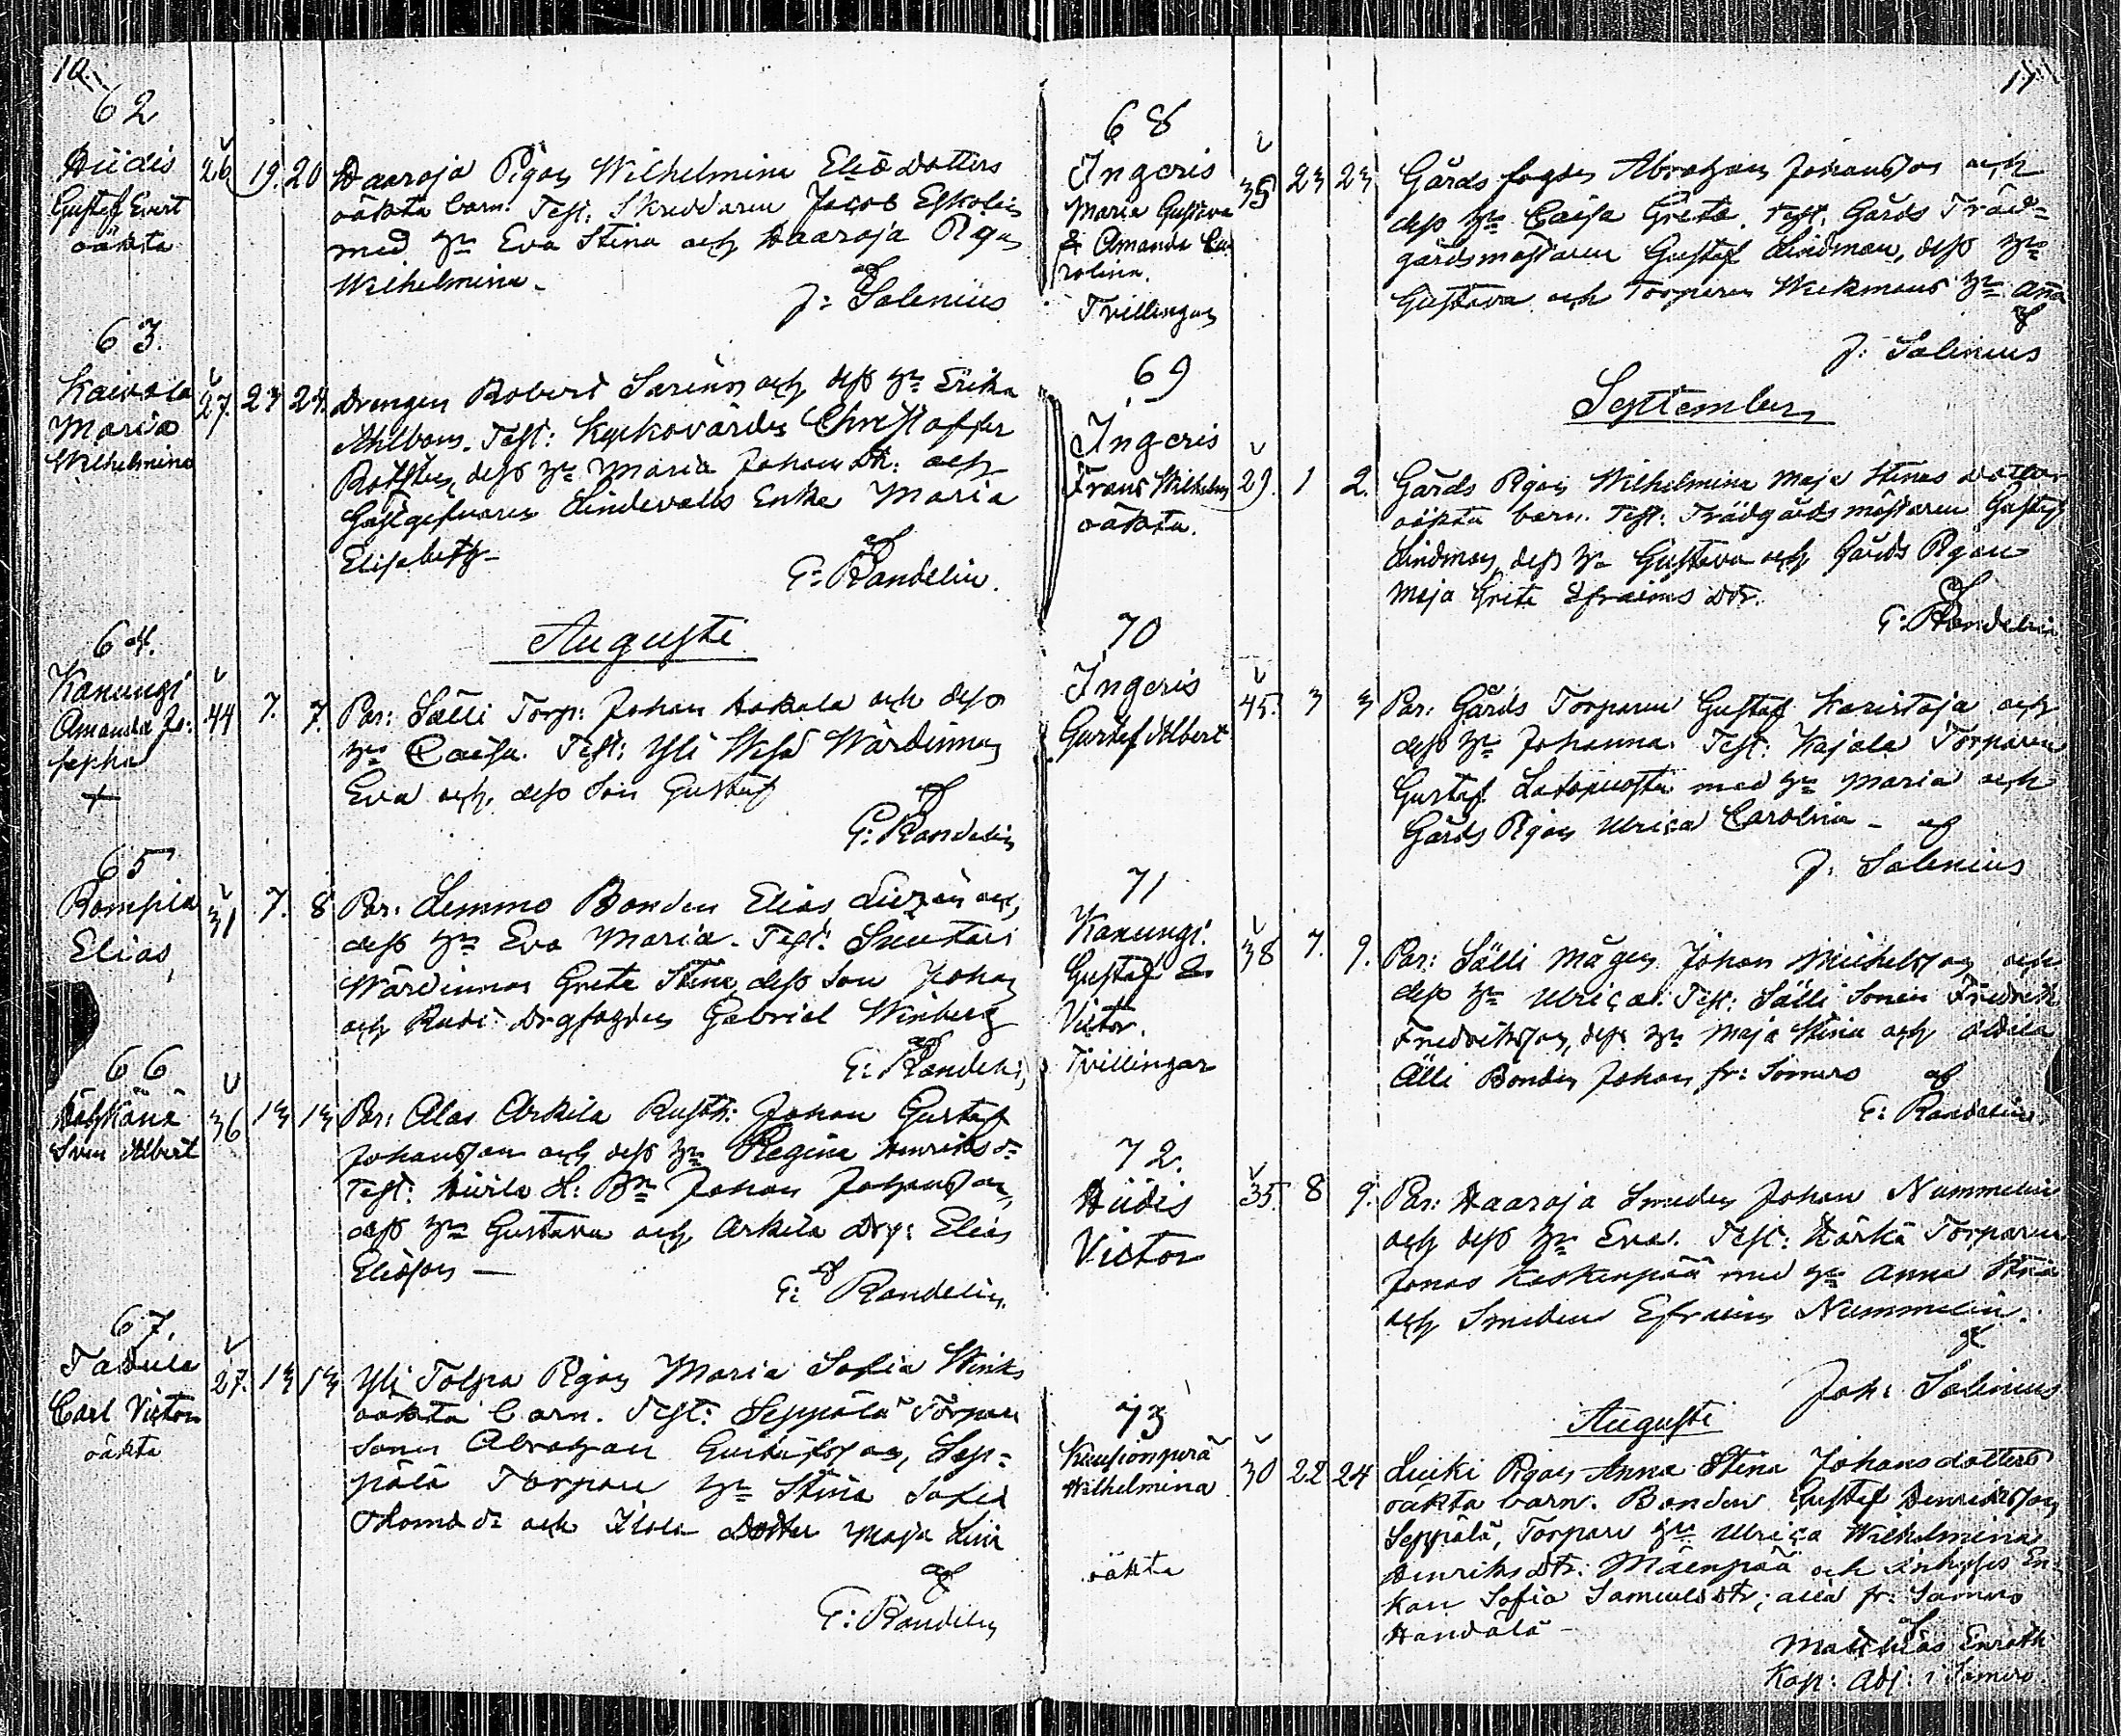 10.
62
Hiidis
Gustaf Evert
oäkta
26 19. 20
Haaroja Pigan Wilhelmina Elisdotters
oäkta barn. Test: Skreddaren Jacob
med hu Eva Stina och Haaroja Pigan
Wilhelmina
af
J: Salenius
63.
Kaivola
Maria
Wilhelmina
27. 23 24.
Drengen Robert och dess hu Erika
Test: Christoffer
dess hu Maria och
Enka Maria
Elisabeth
af
G: Randelin.
Augusti
64.
Kanungi
Amanda Jo:
sepha
+
44 7. 7.
Par: Sälli Torp: Johan Hakala och dess
hu Caisa. Test: Yli Wärdinnan
Eva och dess Son Gustaf
af
G: Randelin
65
Elias
31 7. 8
Par: Lemmo Bonden Elias och
dess hu Eva Maria. Test:
Wärdinnan Greta Stina dess Son Johan
och Gabriel Winberg
af
G: Randelin
66
Sven Albert
36 13 13
Par: Alas Arkila Rusth: Johan Gustaf
Johansson och dess hu Regina Henriks dr
Test: Johan Johansson,
dess hu Gustava och Arkila Drg: Elias
Eliasson
af
G: Randelin.
67.
Carl Victor
oäkta
27. 13 13
Yli Tolpa Pigan Maria Sofia
oäkta barn. Test: Seppälä Torpare
Sonen Abraham Gustafsson, Sep=
pälä Torpare hu Stina Sofia
dr och dotter Maja Lisa
af
G: Randelin
11.
68
Ingeris
Maria Gustava
& Amanda Ca
rolina.
Tvillingar
35 23 23
Gårds fogden Abraham Johansson och
dess hu Caisa Greta. Test. Gårds Träd=
gårdsmästaren Gustaf Lindman, dess hu
Gustava och Torparen Wickmans hu Anna
af
J: Salenius
September
69
Ingeris
Frans Wilhelm
oäkta.
29. 1 2.
Gårds Pigan Wilhelmina Maja Stinas dotter
oäkta barn. Test: Trädgårdsmästaren Gustaf
Lindman, dess hu Gustava och Gårds Pigan
Maja Greta Efraims dr.
af
G: Randelin
70
Ingeris
Gustaf Albert
45. 3 3
Par: Gårds Torparen Gustaf Karistoja och
dess hu Johanna. Test: Kajala Torparen
Gustaf med hu Maria och
Gårds Pigan Ulrica Carolina - af
J. Salenius
71
Kanungi.
Gustaf &
Victor.
Tvillingar
38 7. 9.
Par: Sälli Mågen Johan Michelsson och
dess hu Ulrica. Test: Sälli Sonen Fredrik
Fredriksson, dess hu Maja Stina och
Älli Bonden Johan fr: Somero
af
G: Randelin.
72.
Hiidis
Victor
35. 8 9.
Par: Haaroja Smeden Johan Nummelin
och dess hu Eva. Test: Härkä Torparen
Jonas Koskenpää med hu Anna Stina
och Smeden Efraim Nummelin.
af
Joh: Salenius
Augusti
73
Wilhelmina
oäkta
30 22 24
Pigan Anna Stina Johansdotters
oäkta barn. Bonden Gustaf Henriksson
Seppälä, Torpare hu Ulrica Wilhelmina
Henriksdtr: Mäenpää och inhyses En=
kan Sofia Samuelsdtr; alla fr: Somero
af
Matthias Enroth
Kap: Adj: i Somero.